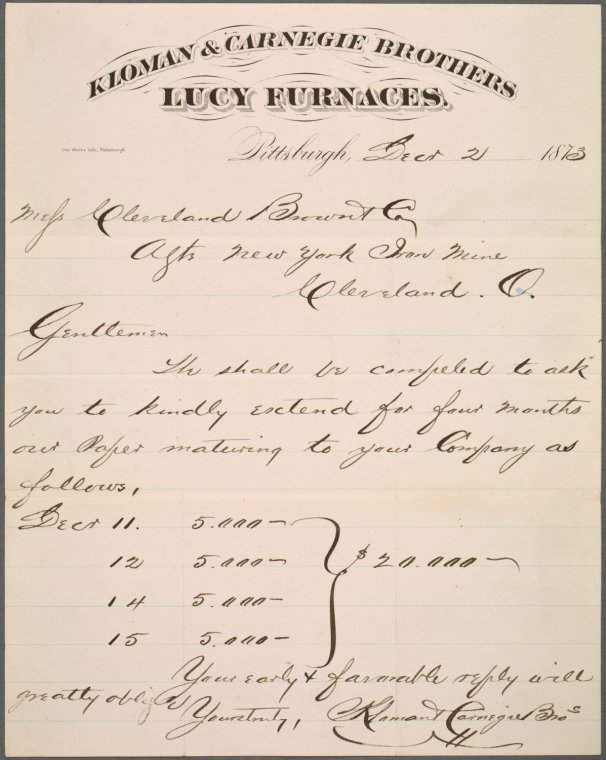 KLOMAN & CARNEGIE BROTHERS
LUCY FURNACES.
Pittsburgh, Decr 2 1873
Mess Cleveland Brown & Co
Agts New York Iron Mine
Cleveland. O.
Gentlemen
We shall be compeled to ask
you to kindly extend for four months
our Paper maturing to your Company as
follows,
Decr 11. 5.000-
12 5.000- $20.000-
14 5.000-
15 5.000-
Your early & favorable reply will
greatly oblige
Yours truly, Kloman & Carnegie Bros